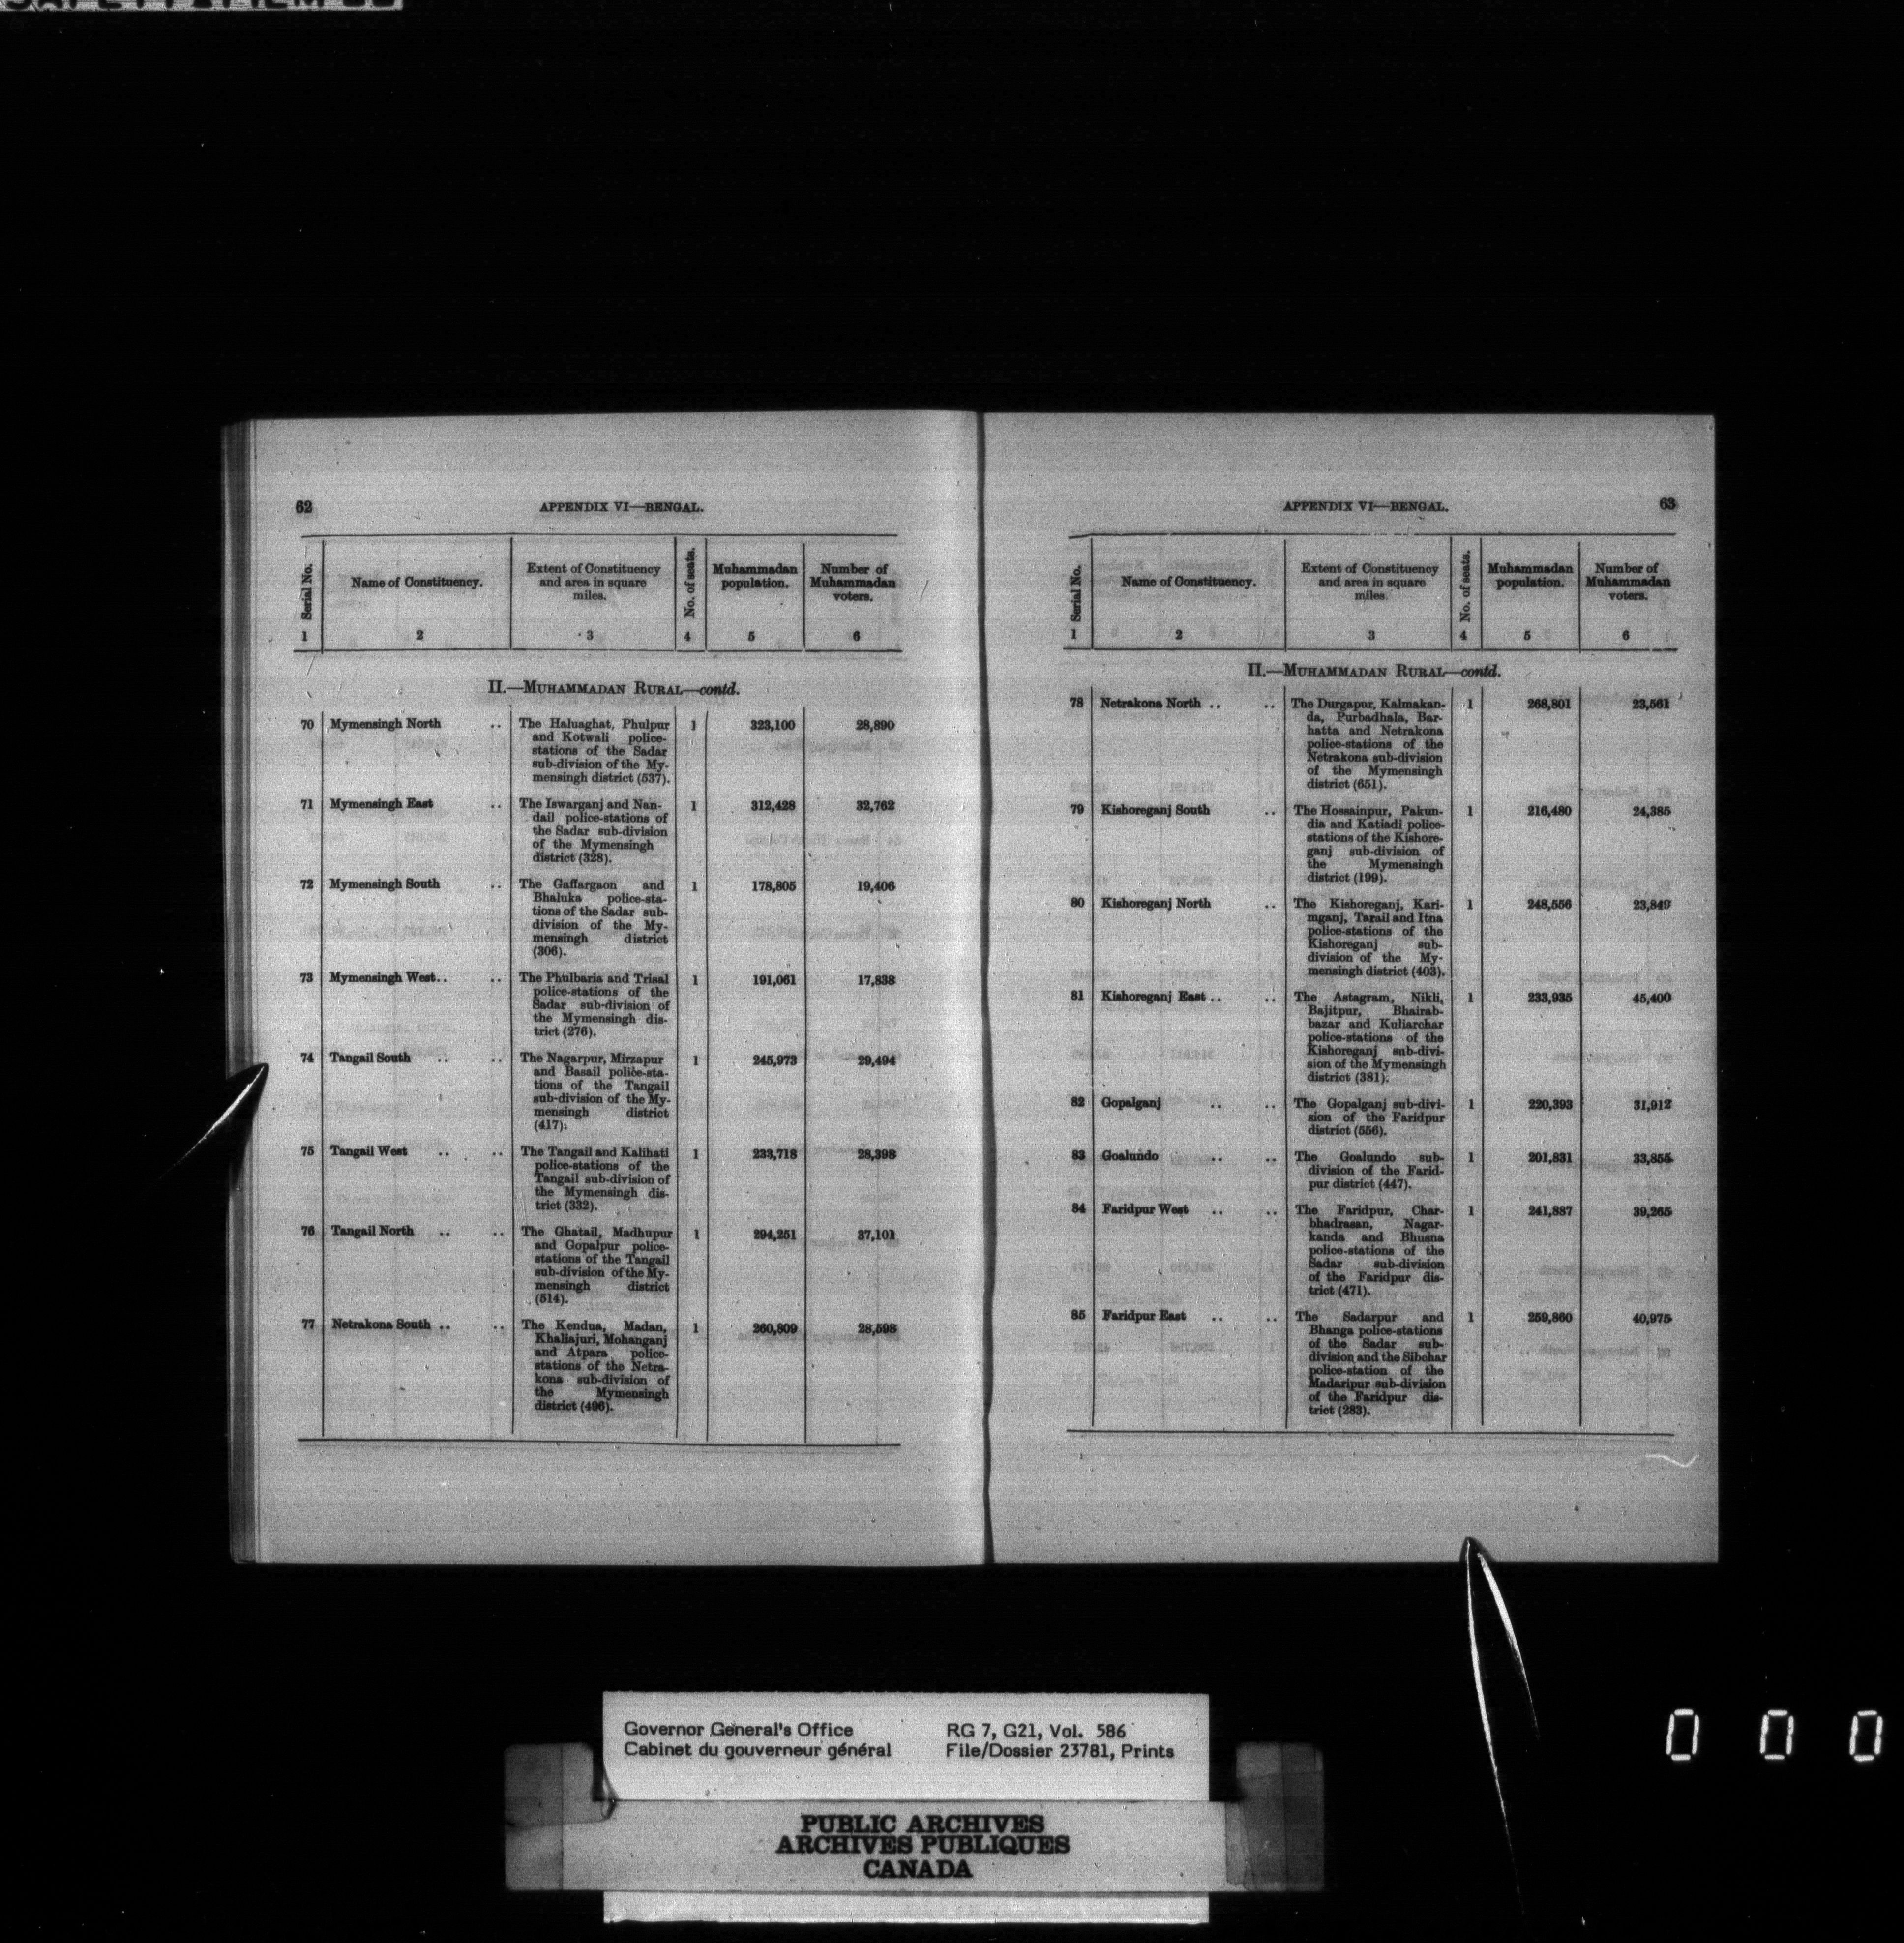 62
APPENDIX VI—BENGAL.
Serial No.
Name of Constituency.
Extent of Constituency
and area in square
miles.
No. of seats.
Muhammadan
population.
Number of
Muhammadan
voters.
1 2 3 4 5 6
II.—MUHAMMADAN RURAL—contd.
70 Mymensingh North .. The Haluaghat, Phulpur 1 323,100 28,890
and Kotwali police-
stations of the Sadar
sub-division of the My-
mensingh district (537).
71 Mymensingh East .. The Iswarganj and Nan- 1 312,428 32,762
dail police-stations of
the Sadar sub-division
of the Mymensingh
district (328).
72 Mymensingh South .. The Gaffargaon and 1 178,805 19,406
Bhaluka police-sta-
tions of the Sadar sub-
division of the My-
mensingh district
(306).
73 Mymensingh West.. .. The Phulbaria and Trisal 1 191,061 17,838
police-stations of the
Sadar sub-division of
the Mymensingh dis-
trict (276).
74 Tangail South .. .. The Nagarpur, Mirzapur 1 245,973 29,494
and Basail police-sta-
tions of the Tangail
sub-division of the My-
mensingh district
(417).
75 Tangail West .. .. The Tangail and Kalihati 1 233,718 28,398
police-stations of the
Tangail sub-division of
the Mymensingh dis-
trict (332).
76 Tangail North .. .. The Ghatail, Madhupur 1 294,251 37,101
and Gopalpur police-
stations of the Tangail
sub-division of the My-
mensingh district
(514).
77 Netrakona South .. .. The Kendua, Madan, 1 260,809 28,598
Khaliajuri, Mohanganj
and Atpara police-
stations of the Netra-
kona sub-division of
the Mymensingh
district (496).
APPENDIX VI—BENGAL.
63
Serial No.
Name of Constituency.
Extent of Constituency
and area in square
miles.
No. of seats.
Muhammadan
population.
Number of
Muhammadan
voters.
1 2 3 4 5 6
II.—MUHAMMADAN RURAL—contd.
78 Netrakona North .. .. The Durgapur, Kalmakan- 1 268,801 23,561
da, Purbadhala, Bar-
hatta and Netrakona
police-stations of the
Netrakona sub-division
of the Mymensingh
district (651).
79 Kishoreganj South .. The Hossainpur, Pakun- 1 216,480 24,385
dia and Katiadi police-
stations of the Kishore-
ganj sub-division of
the Mymensingh
district (199).
80 Kishoreganj North .. The Kishoreganj, Kari- 1 248,556 23,849
mganj, Tarail and Itna
police-stations of the
Kishoreganj sub-
division of the My-
mensingh district (403).
81 Kishoreganj East .. .. The Astagram, Nikli, 1 233,935 45,400
Bajitpur, Bhairab-
bazar and Kuliarchar
police-stations of the
Kishoreganj sub-divi-
sion of the Mymensingh
district (381).
82 Gopalganj .. .. The Gopalganj sub-divi- 1 220,393 31,912
sion of the Faridpur
district (556).
83 Goalundo .. .. The Goalundo sub- 1 201,831 33,855
division of the Farid-
pur district (447).
84 Faridpur West .. .. The Faridpur, Char- 1 241,887 39,265
bhadrasan, Nagar-
kanda and Bhusna
police-stations of the
Sadar sub-division
of the Faridpur dis-
trict (471).
85 Faridpur East .. .. The Sadarpur and 1 259,860 40,975
Bhanga police-stations
of the Sadar sub-
division and the Sibchar
police-station of the
Madaripur sub-division
of the Faridpur dis-
trict (283).
Governor General's Office RG 7, G21, Vol. 586
Cabinet du gouverneur général File/Dossier 23781, Prints
PUBLIC ARCHIVES
ARCHIVES PUBLIQUES
CANADA
0 0 0